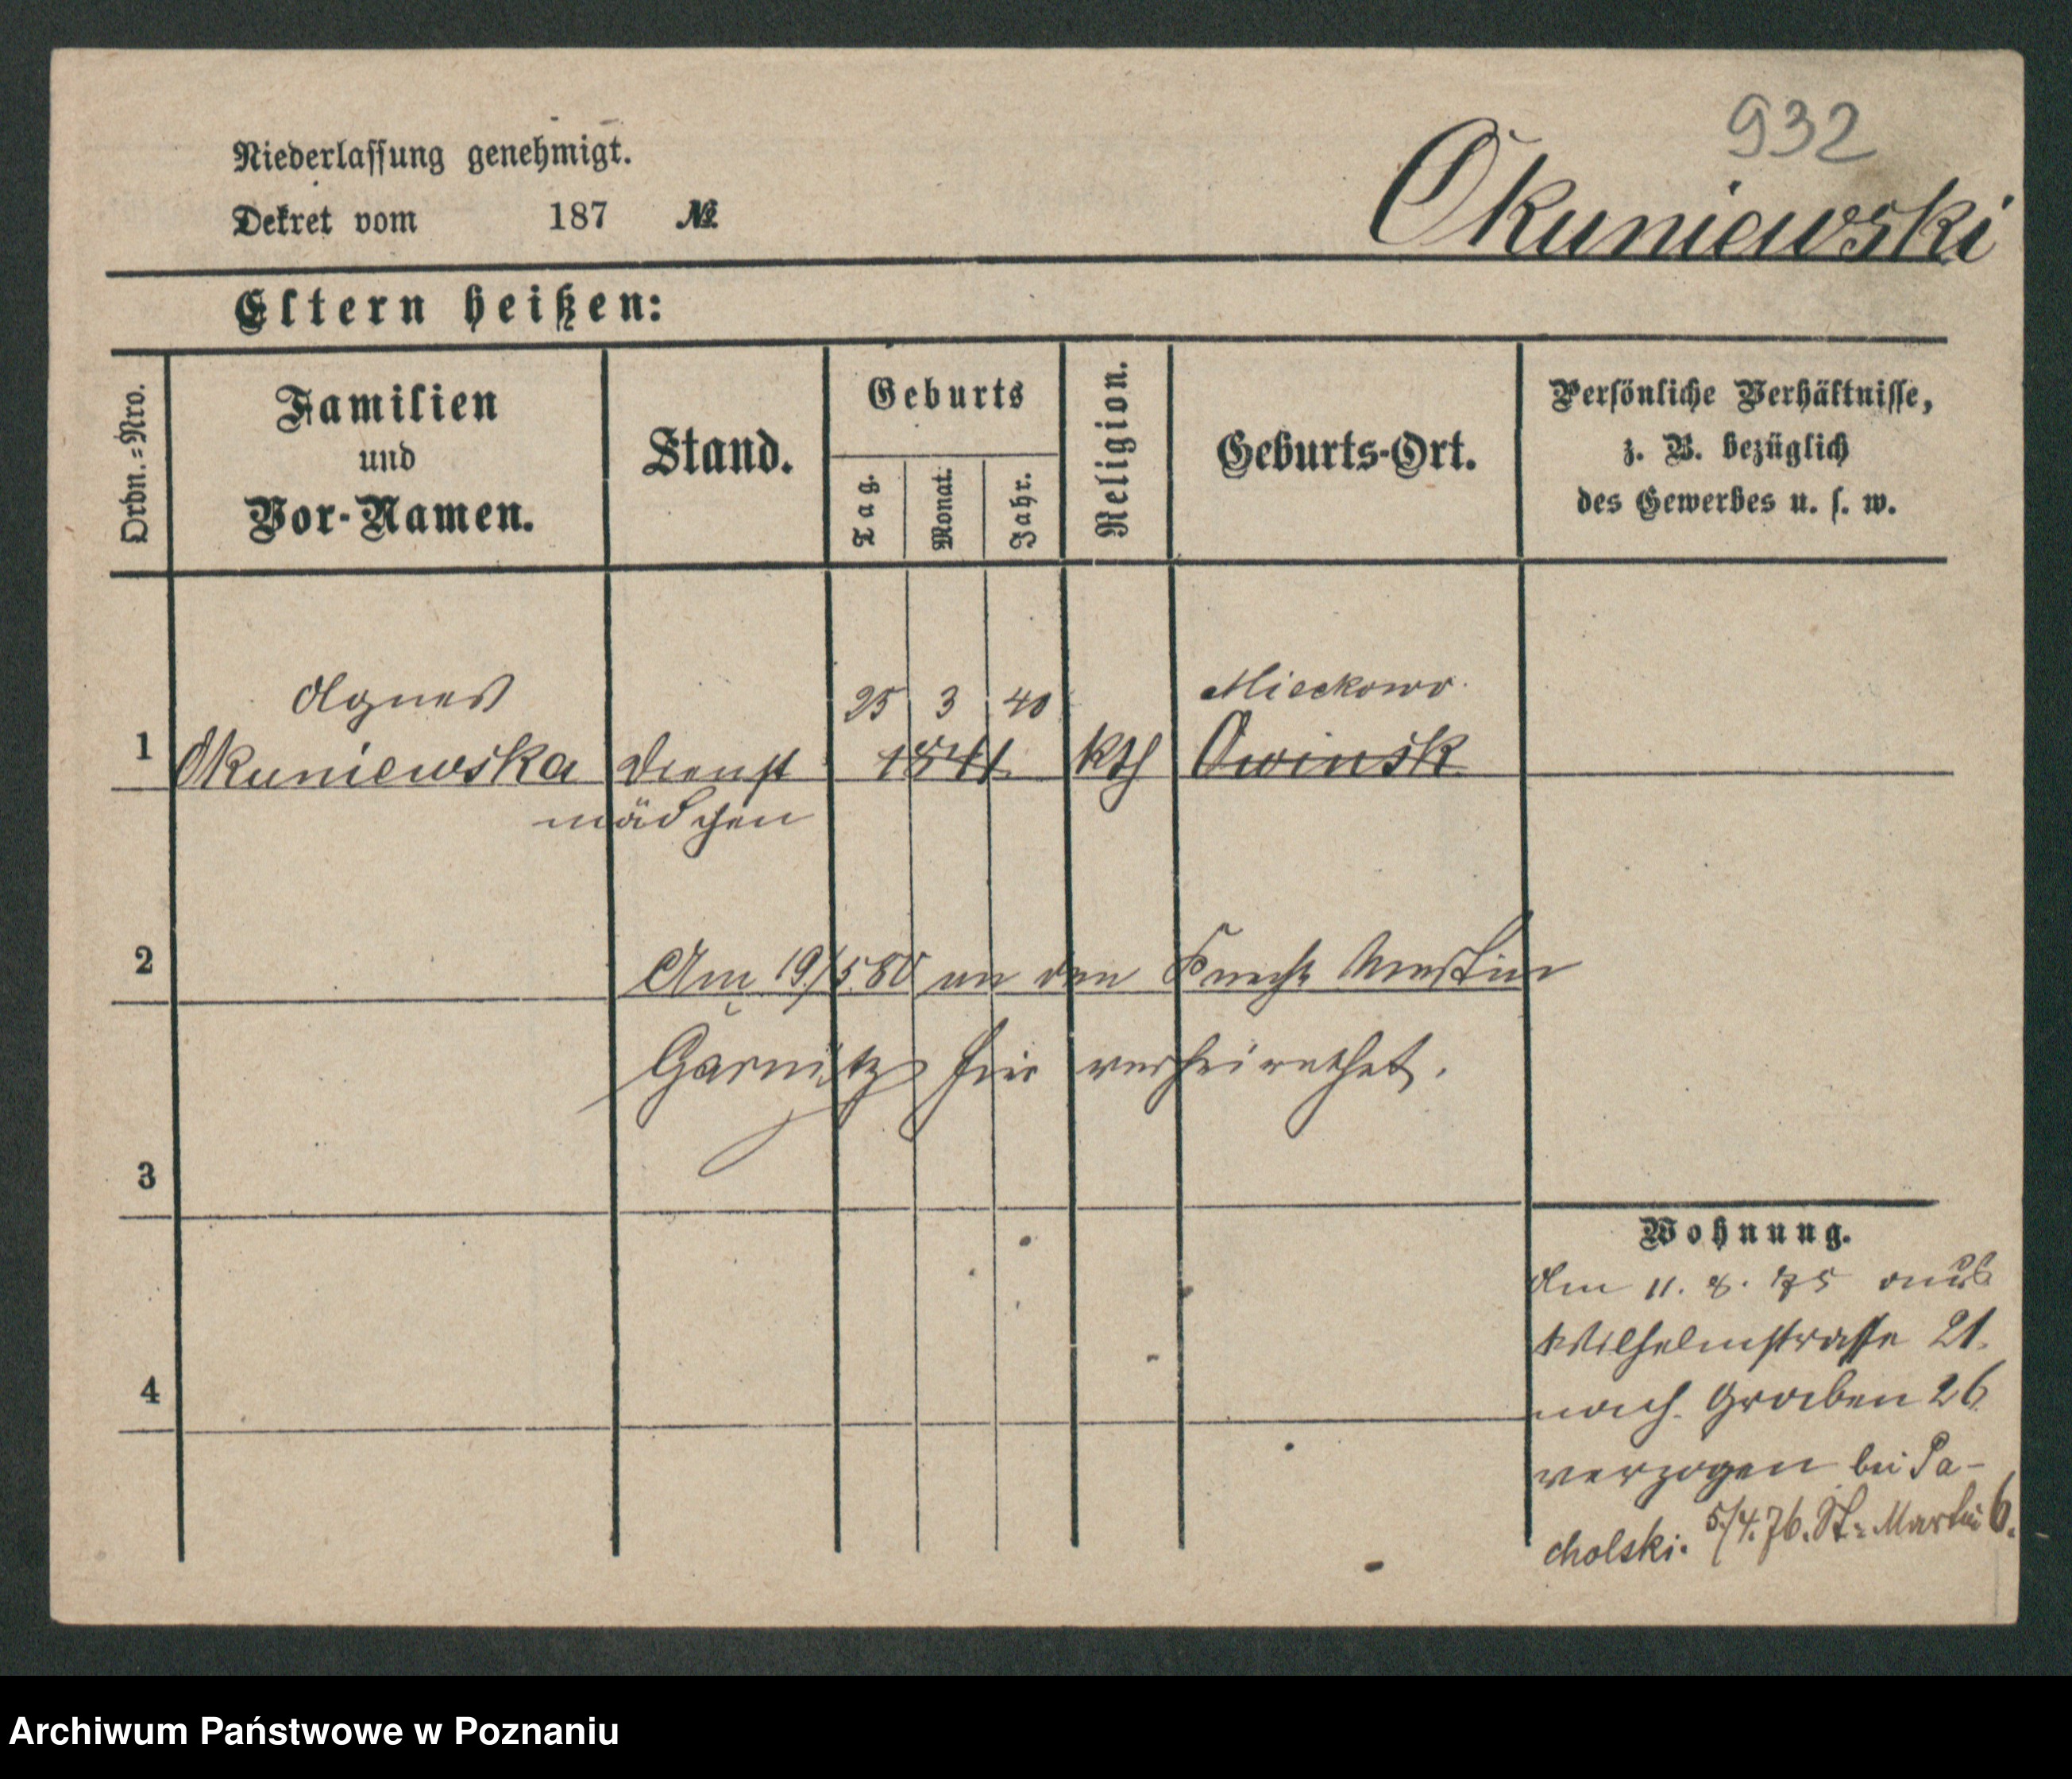 932
Niederlassung genehmigt.
Dekret vom 187 №
Okuniewski
Eltern heißen:
Ordn.=Nro.
Familien
und
Vor-Namen.
Stand.
Geburts
Tag.
Monat.
Jahr.
Religion.
Geburts-Ort.
Persönliche Verhältnisse,
z. B. bezüglich
des Gewerbes u. s. w.
Agnes 25 3 40 Mieckowo.
1 Okuniewska Dienst 1841 kth Owinsk
mädchen
2 Am 19/5.80 an den Knecht Martin
Garnitz hier verheirathet.
3
Wohnung.
Am 11. 8. 75 aus
Wilhelmstrasse 21.
4 nach Graben 26
verzogen bei Pa-
cholski. 5/4.76. St. Martin 6.
Archiwum Państwowe w Poznaniu